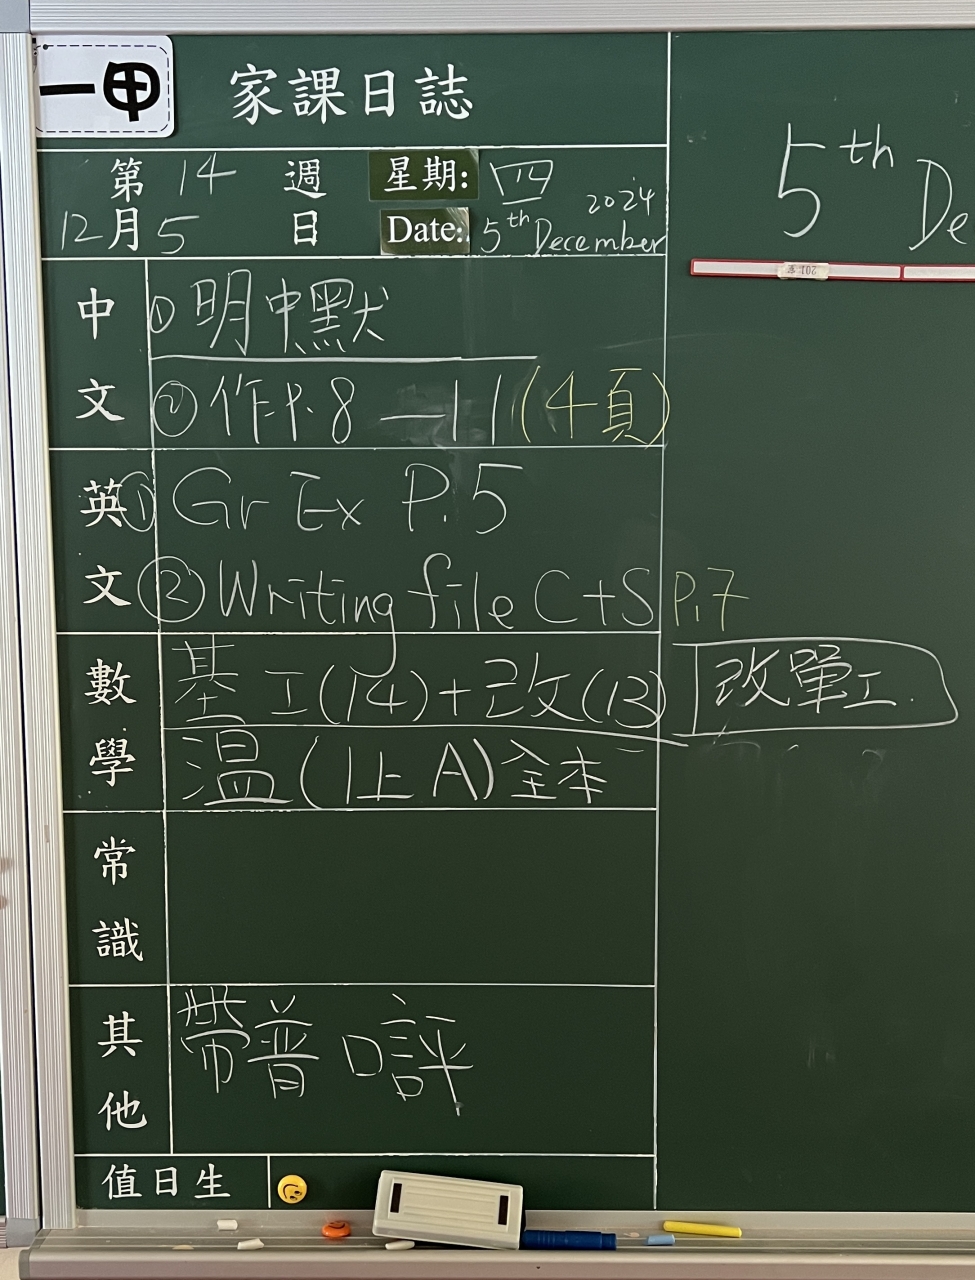 一甲
家課日誌
第 14 週 星期: 四
12月5日 Date: 5th December 2024
5th De
中文
① 明中默
② 作P.8 — 11 (4頁)
英文
① Gr Ex P.5
② Writing file C+S P.7
數學
基工(14)+改(13) 改單工
温(1上A)全本
常識
其他
帶普口評
值日生